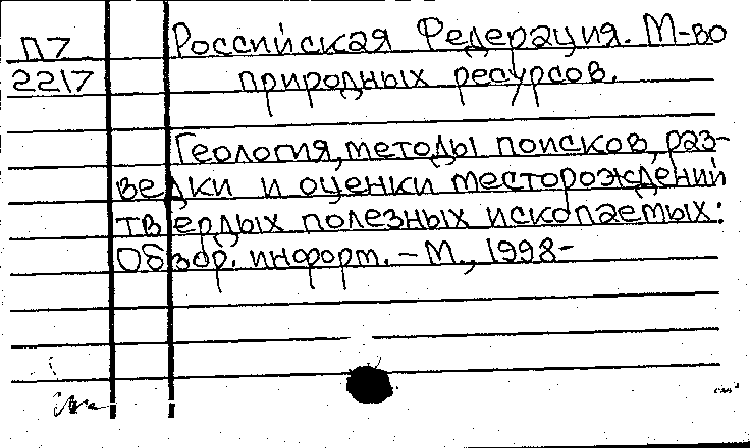 П7 Российская Федерация. М-во
2217 природных ресурсов.
Геология, методы поисков, раз-
ведки и оценки месторождений
твердых полезных ископаемых:
Обзор. информ. – М., 1998-